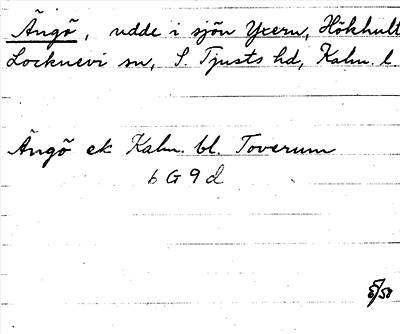 Ängö, udde i sjön Yxern, Hökhult
Locknevi sn, S. Tjusts hd, Kalm. l
Ängö ek Kalm. bl. Toverum
6 G 9 d